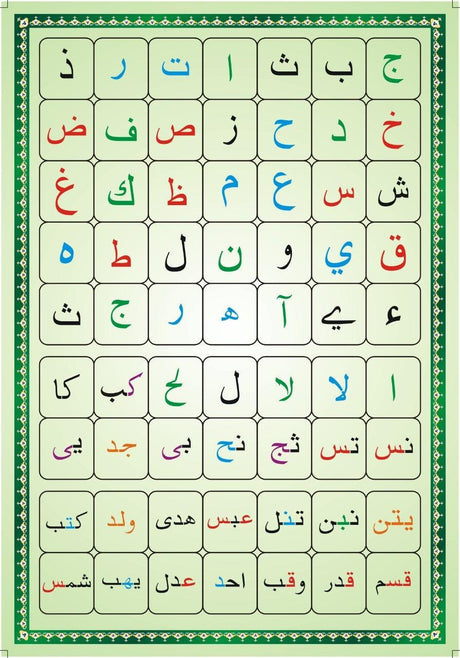 ج ب ث ا ت ر ذ
خ د ح ز ص ف ض
ش س ع م ظ ك غ
ق ي و ن ل ط ه
ء ے آ ه ر ج ث
ا لا لا ل لح كب كا
نس تس ثج نح بى جد يى
يتن نبن تنل عبس هدى ولد كتب
قسم قدر وقب احد عدل يهب شمس